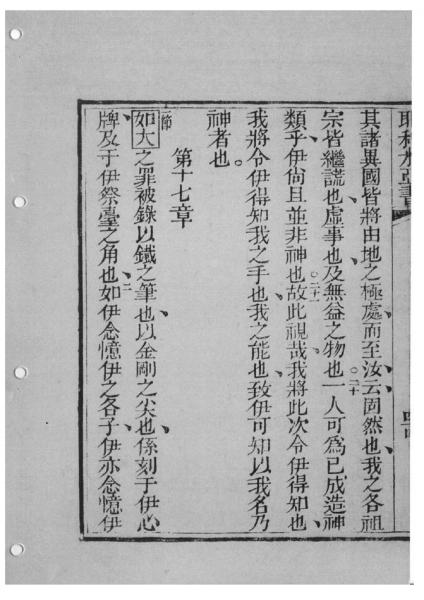 耶利米亞書
其諸異國皆將由地之極處而至汝云固然也我之各祖
宗皆繼謊也虛事也及無益之物也○二十一人可爲已成造神
類乎伊尚且並非神也○二十一故此視哉我將此次令伊得知也
我將令伊得知我之手也我之能也致伊可知以我名乃
神者也。
第十七章
一節
如大之罪被錄以鐵之筆也以金剛之尖也係刻于伊心
牌及于伊祭臺之角也二如伊念憶伊之各子伊亦念憶伊